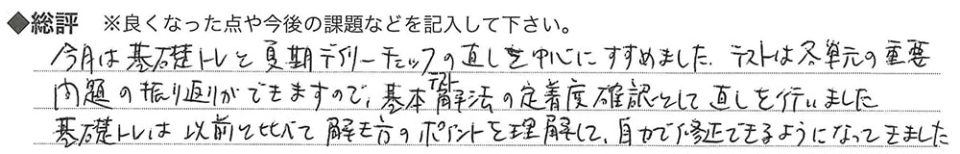 ◆総評 ※良くなった点や今後の課題などを記入して下さい。
今月は基礎トレと夏期デイリーチェックの直しを中心にすすめました. テストは各単元の重要
問題の振り返りができますので、基本解法の定着度確認として直しを行いました
テスト
基礎トレは以前と比べて解き方のポイントを理解して、自力で修正できるようになってきました